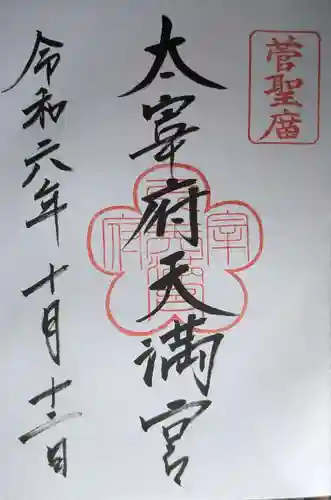 菅聖廟
太宰府天満宮
令和六年十月十二日